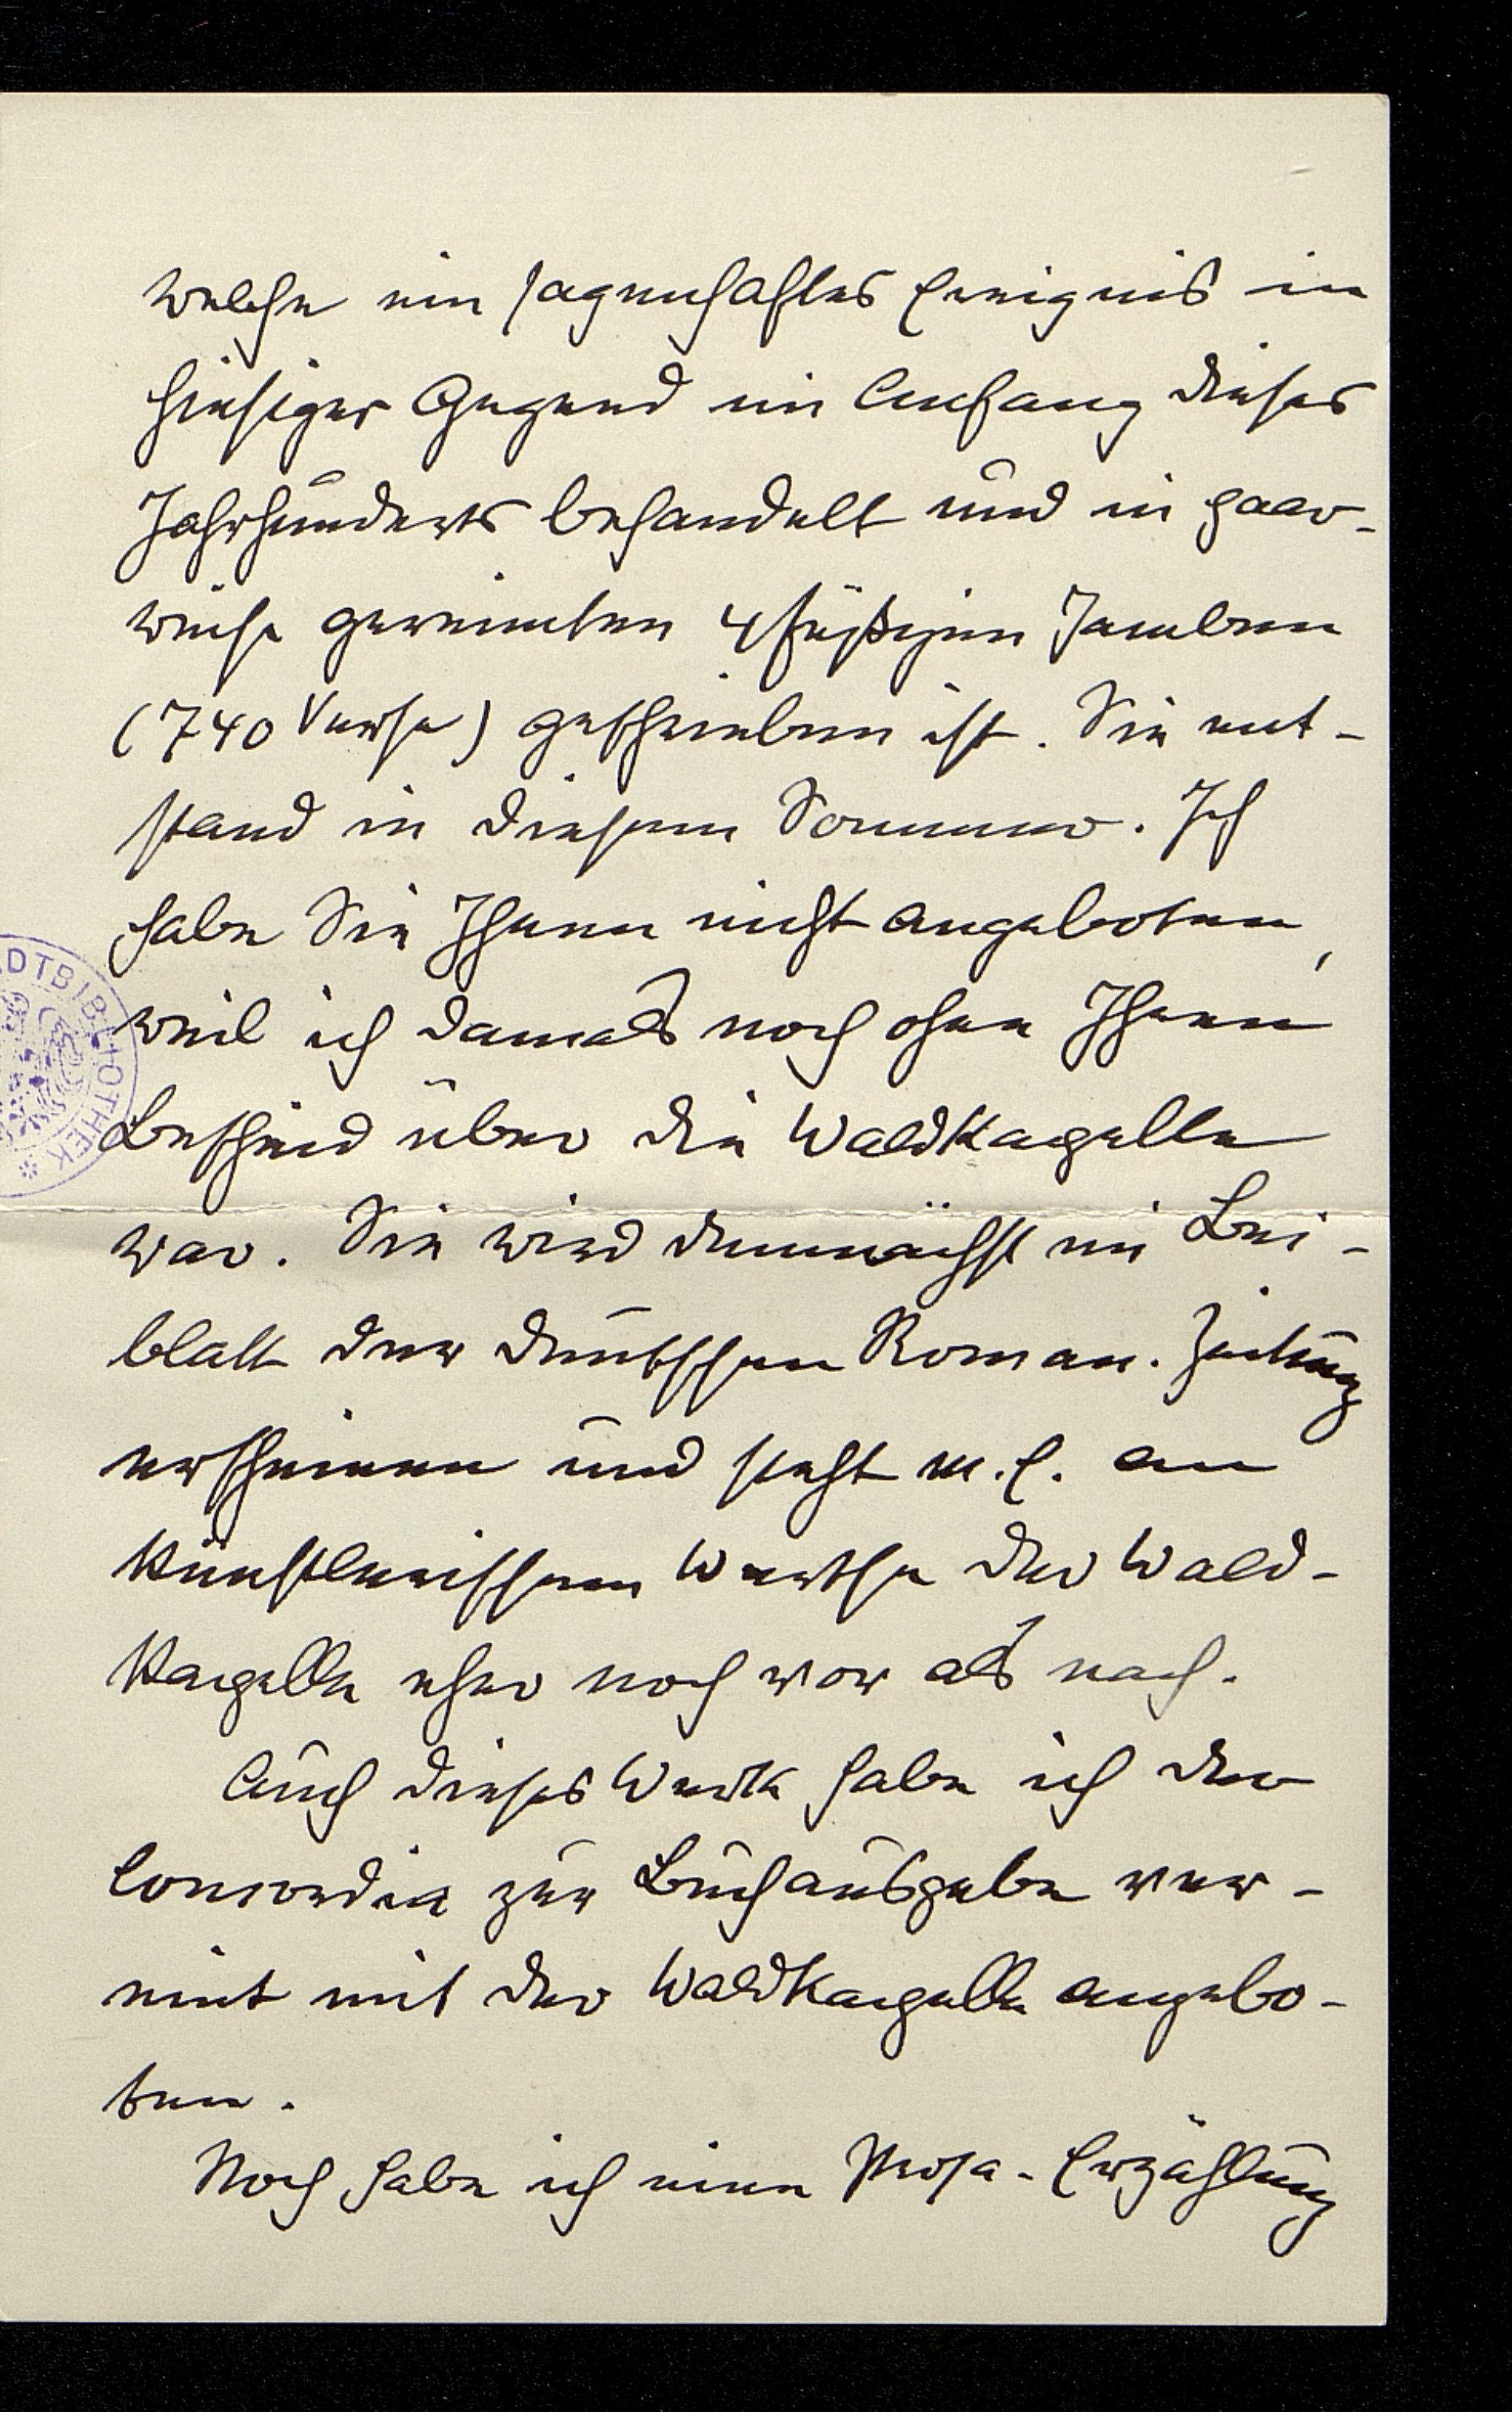 welche ein sagenhaftes Ereignis in
hiesiger Gegend im Anfang dieses
Jahrhunderts behandelt und in paar-
weise gereimten 4füßigen Jamben
(740 Verse) geschrieben ist. Sie ent-
stand in diesem Sommer. Ich
habe Sie Ihnen nicht angeboten,
weil ich damals noch ohne Ihren
Bescheid über die Waldkapelle
war. Sie wird demnächst im Bei-
blatt der deutschen Roman-Zeitung
erscheinen und steht m. E. an
künstlerischem Werthe der Wald-
kapelle eher noch vor als nach.
Auch dieses Werk habe ich der
Concordia zur Buchausgabe ver-
eint mit der Waldkapelle angebo-
ten.
Noch habe ich eine Prosa-Erzählung
DTBIBLIOTHEK